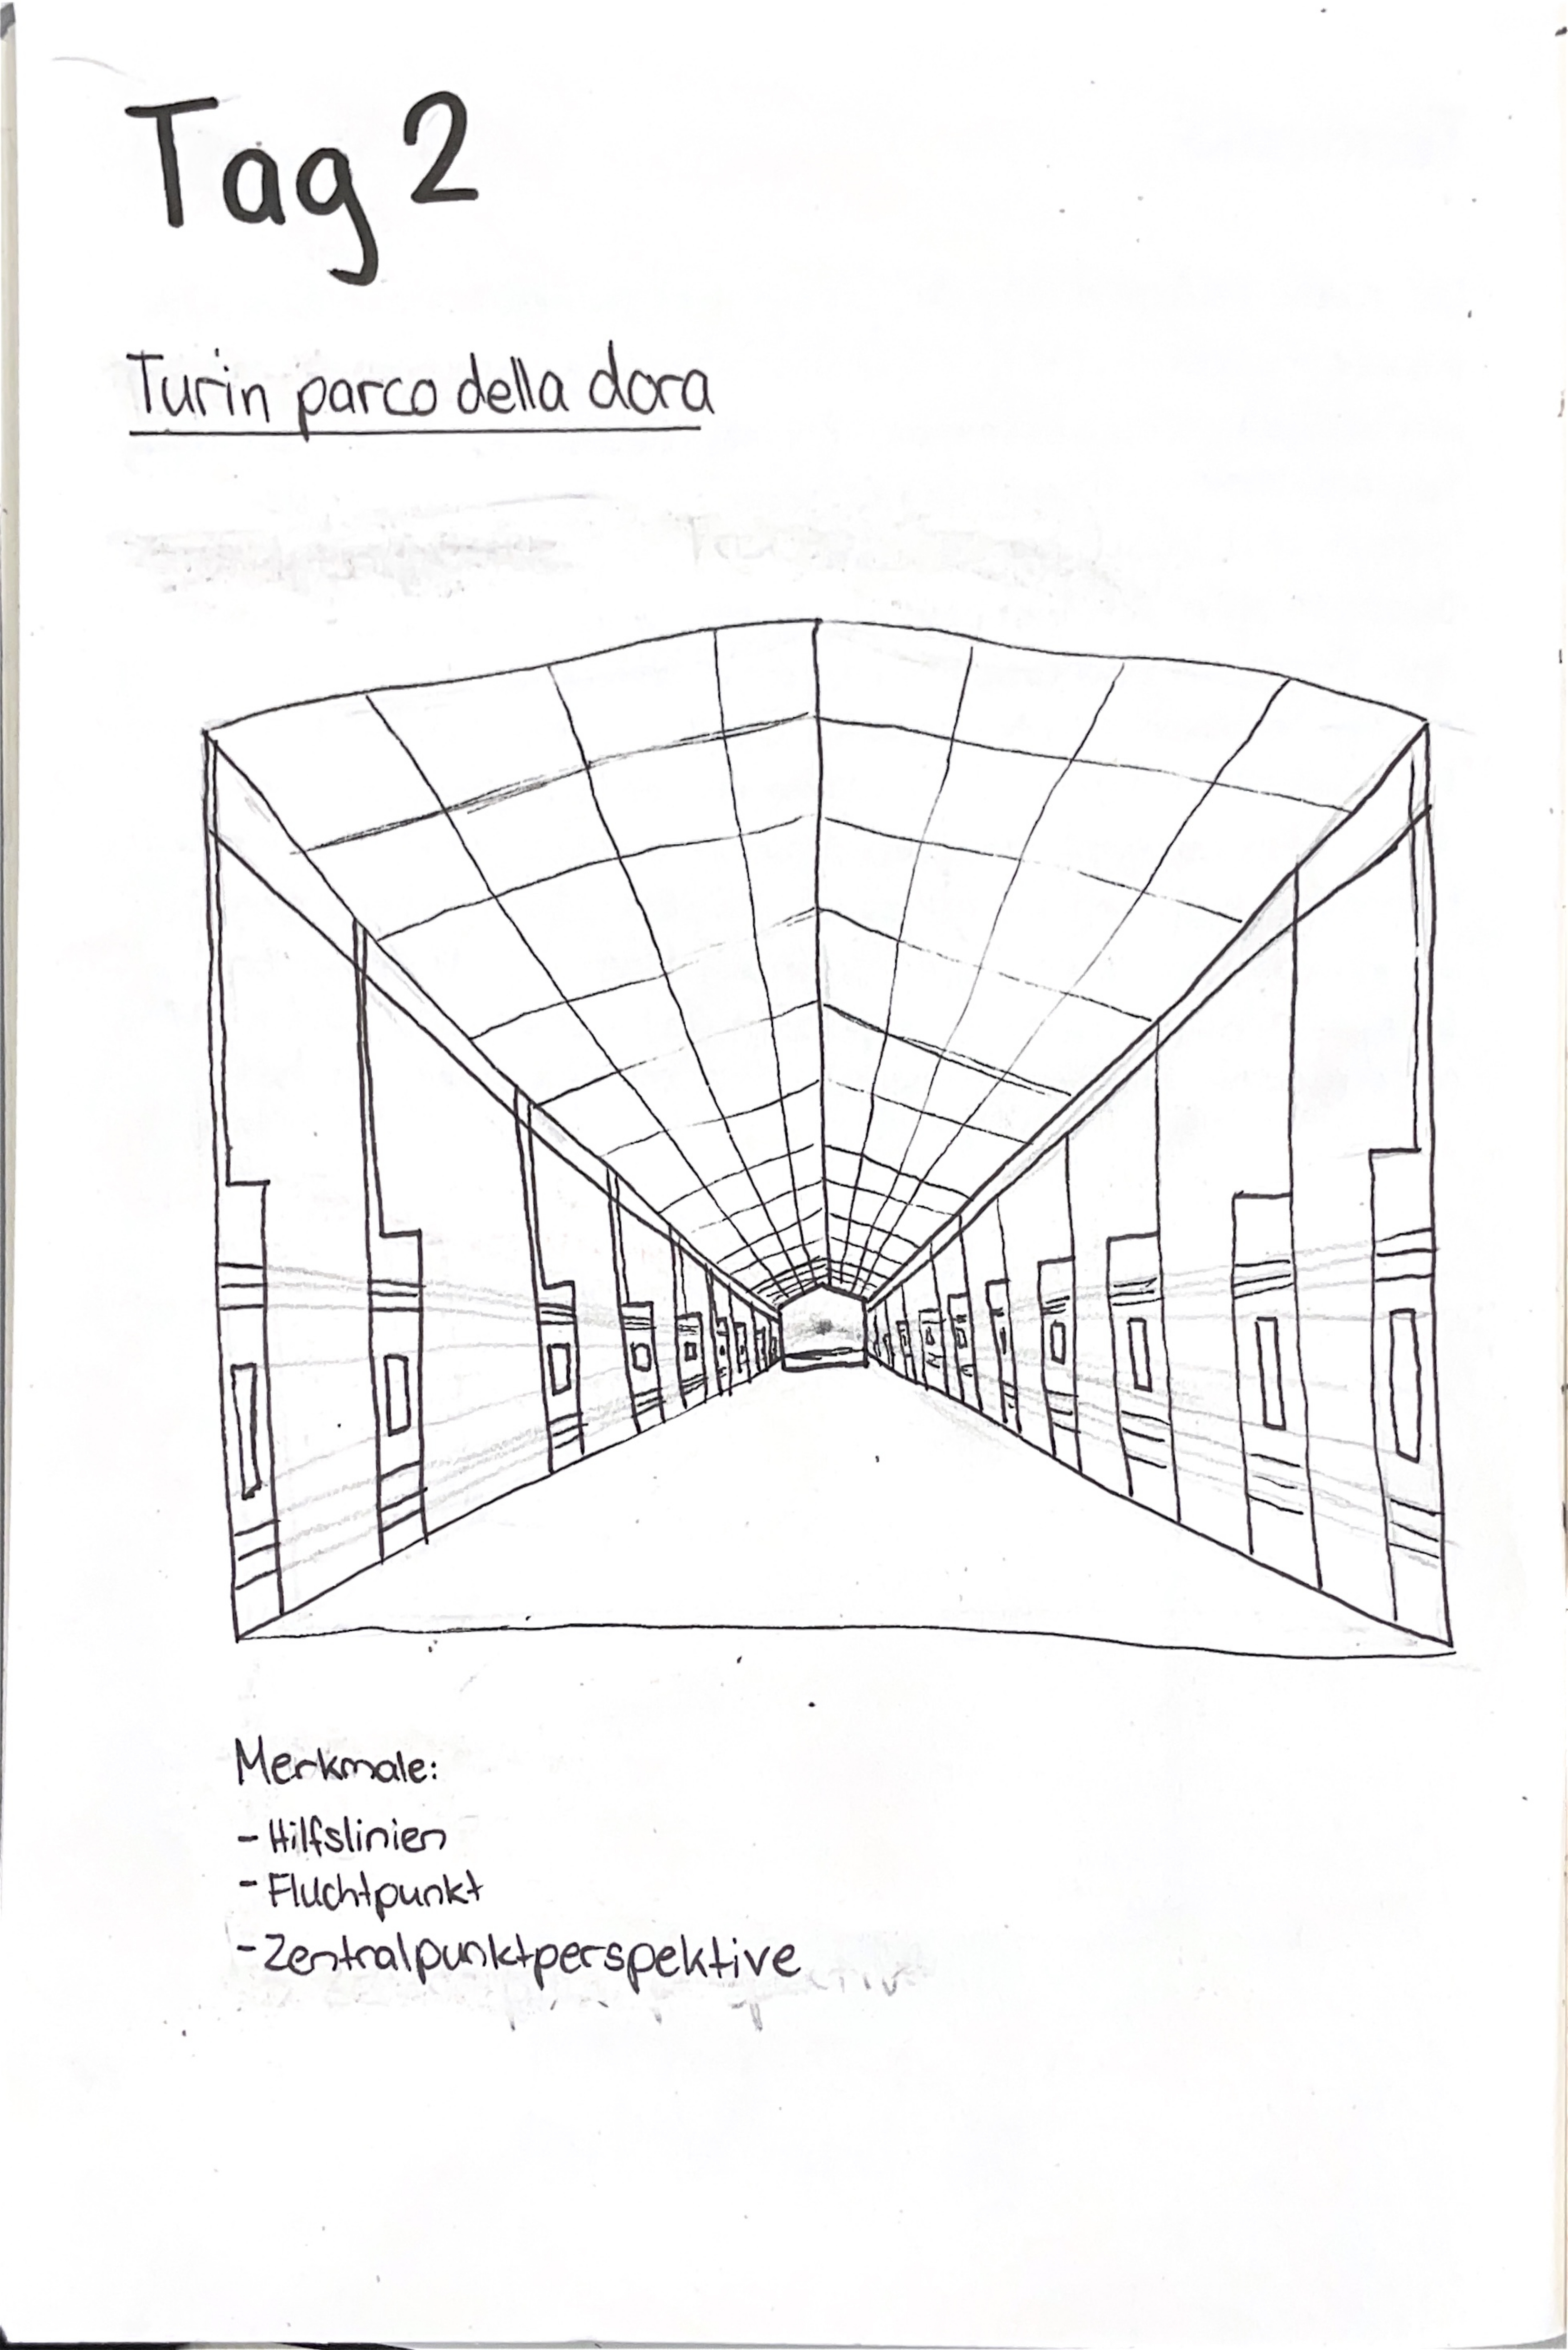 Tag 2
Turin parco della dora
Merkmale:
- Hilfslinien
- Fluchtpunkt
- Zentralpunktperspektive